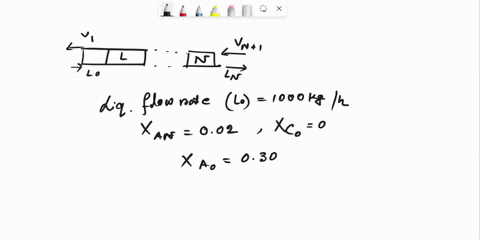 V1 VN+1
L N
L0 LN
Liq. flow rate (L0) = 1000 kg/h
XAN = 0.02 , XC0 = 0
XA0 = 0.30